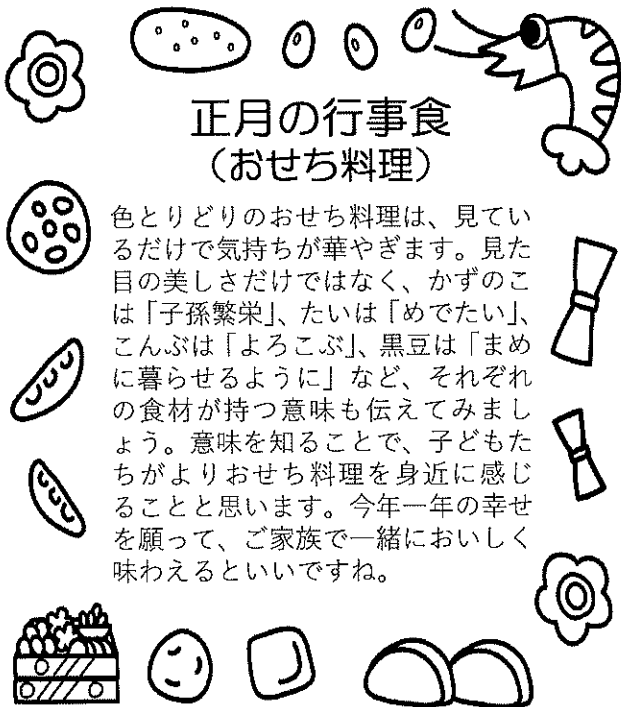 正月の行事食
（おせち料理）
色とりどりのおせち料理は、見てい
るだけで気持ちが華やぎます。見た
目の美しさだけではなく、かずのこ
は「子孫繁栄」、たいは「めでたい」、
こんぶは「よろこぶ」、黒豆は「まめ
に暮らせるように」など、それぞれ
の食材が持つ意味も伝えてみまし
ょう。意味を知ることで、子どもた
ちがよりおせち料理を身近に感じ
ることと思います。今年一年の幸せ
を願って、ご家族で一緒においしく
味わえるといいですね。